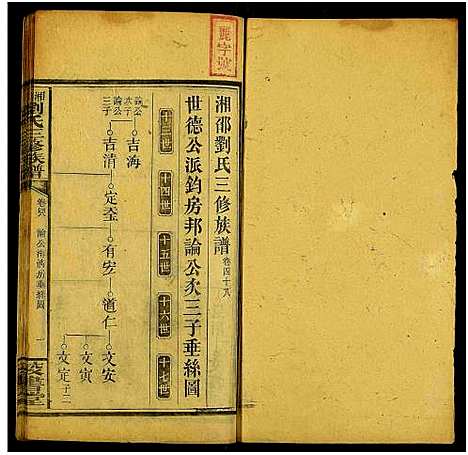 麗字號
湘邵劉氏三修族譜 卷四十八
世德公派鈞房邦論公次三子垂絲圖
十三世 十四世 十五世 十六世 十七世
論公次子 吉海
論公三子 吉清 定 有安 道仁 文安
文寅
文定 子二
湘 劉氏三修族譜
論公海 房垂絲圖 一